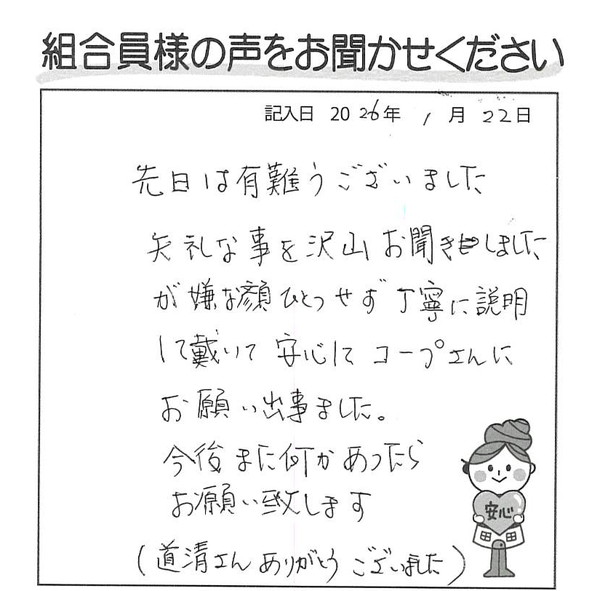 組合員様の声をお聞かせください
記入日 2026年 1月 22日
先日は有難うございました
失礼な事を沢山お聞きしました
が嫌な顔ひとつせず丁寧に説明
して戴いて 安心して コープさんに
お願い出来ました。
今後また何かあったら
お願い致します
(道清さん ありがとう ございました)
安心